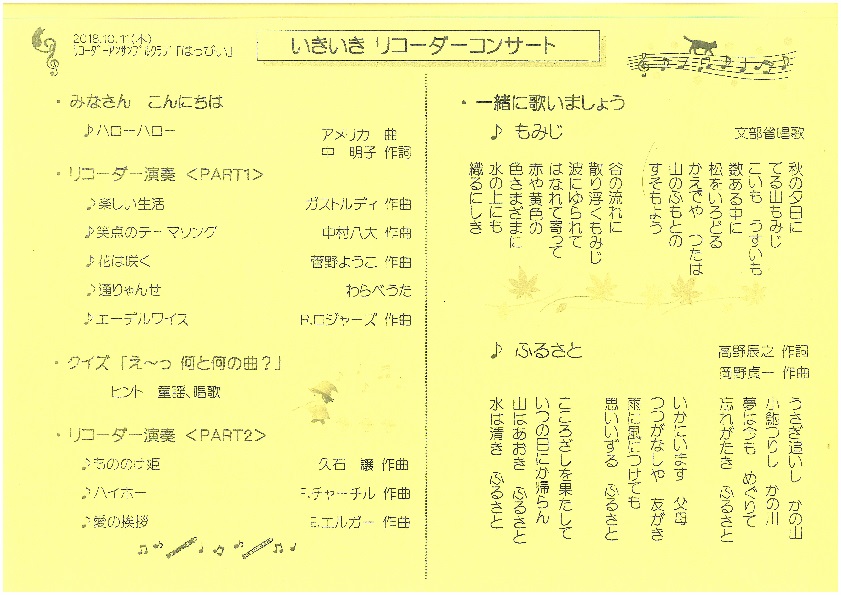 2018.10.11(木)
リコーダーアンサンブルクラブ「はっぴい」
いきいき リコーダーコンサート
・みなさん こんにちは
♪ハローハロー
アメリカ 曲
中 明子 作詞
・リコーダー演奏 ＜PART1＞
♪楽しい生活 ガストルディ 作曲
♪笑点のテーマソング 中村八大 作曲
♪花は咲く 菅野ようこ 作曲
♪通りゃんせ わらべうた
♪エーデルワイス R.ロジャーズ 作曲
・クイズ 「え～っ 何と何の曲？」
ヒント 童謡、唱歌
・リコーダー演奏 ＜PART2＞
♪もののけ姫 久石 譲 作曲
♪ハイホー F.チャーチル 作曲
♪愛の挨拶 E.エルガー 作曲
・一緒に歌いましょう
♪ もみじ 文部省唱歌
秋の夕日に
てる山もみじ
こいも うすいも
数ある中に
松をいろどる
かえでや つたは
山のふもとの
すそもよう
谷の流れに
散り浮くもみじ
波にゆられて
はなれて寄って
赤や黄色の
色さまざまに
水の上にも
織るにしき
♪ ふるさと
高野辰之 作詞
岡野貞一 作曲
うさぎ追いし かの山
小鮒つりし かの川
夢は今も めぐりて
忘れがたき ふるさと
いかにいます 父母
つつがなしや 友がき
雨に風につけても
思いいずる ふるさと
こころざしを果たして
いつの日にか帰らん
山はあおき ふるさと
水は清き ふるさと